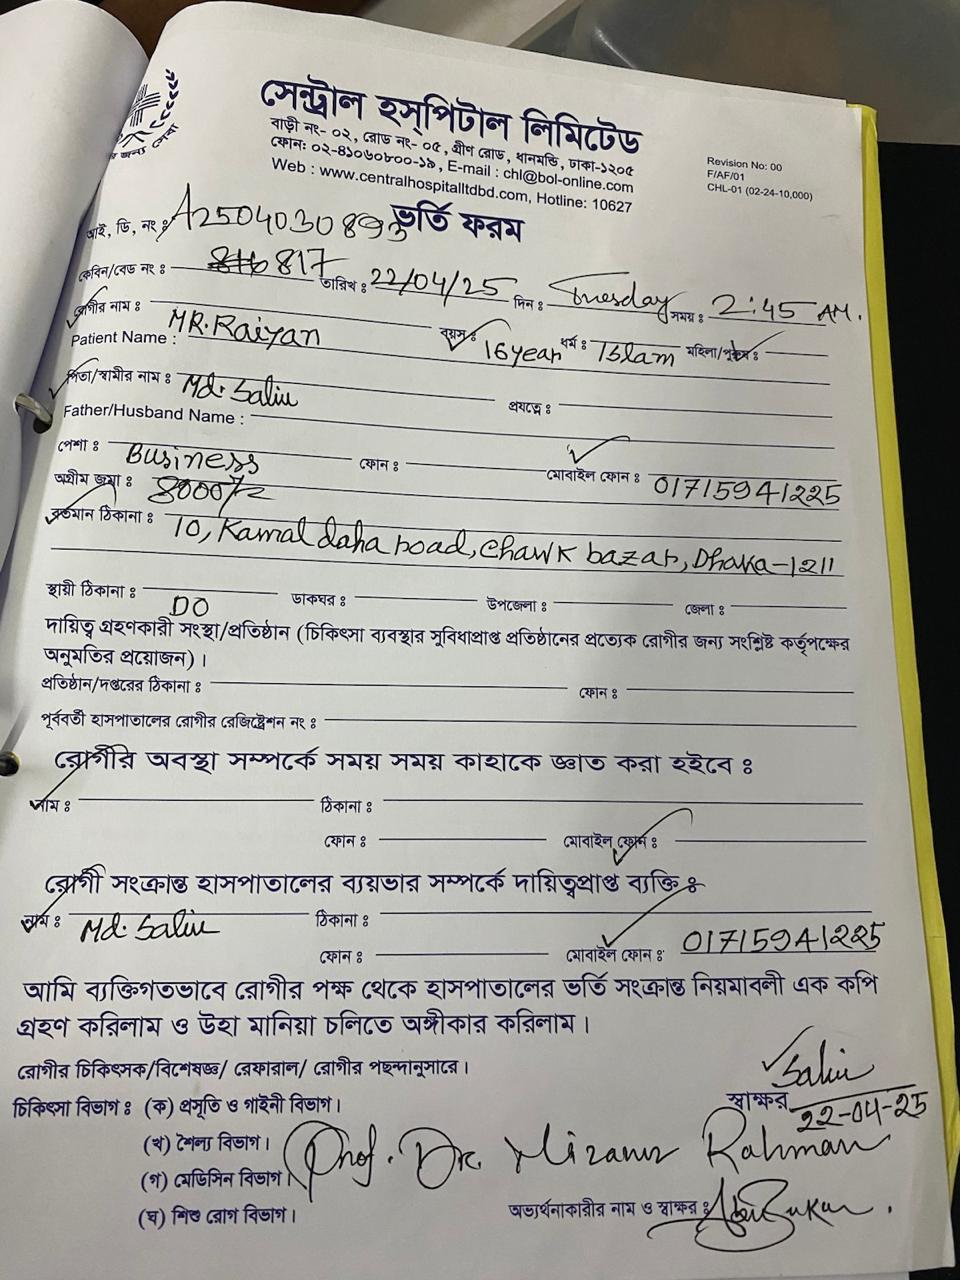 সেন্ট্রাল হস্‌পিটাল লিমিটেড
বাড়ী নং- ০২, রোড নং- ০৫, গ্রীণ রোড, ধানমন্ডি, ঢাকা-১২০৫
ফোন: ০২-৪১০৬০৮০০-১৯, E-mail : chl@bol-online.com
Web : www.centralhospitalltdbd.com, Hotline: 10627
Revision No: 00
F/AF/01
CHL-01 (02-24-10,000)
আই, ডি, নং : A250403089 ভর্তি ফরম
কেবিন/বেড নং : 817 তারিখ : 22/04/25 দিন : Tuesday সময় : 2:45 AM.
রোগীর নাম :
Patient Name : MR. Raiyan বয়স : 16 year ধর্ম : Islam মহিলা/পুরুষ :
পিতা/স্বামীর নাম : Md. Salim প্রযত্নে :
Father/Husband Name :
পেশা : Business ফোন : মোবাইল ফোন : 01715941225
অগ্রীম জমা : 8000/=
বর্তমান ঠিকানা : 10, Kamal daha road, Chawk bazar, Dhaka-1211
স্থায়ী ঠিকানা : DO ডাকঘর : উপজেলা : জেলা :
দায়িত্ব গ্রহণকারী সংস্থা/প্রতিষ্ঠান (চিকিৎসা ব্যবস্থার সুবিধাপ্রাপ্ত প্রতিষ্ঠানের প্রত্যেক রোগীর জন্য সংশ্লিষ্ট কর্তৃপক্ষের
অনুমতির প্রয়োজন) ।
প্রতিষ্ঠান/দপ্তরের ঠিকানা : ফোন :
পূর্ববর্তী হাসপাতালের রোগীর রেজিষ্ট্রেশন নং :
রোগীর অবস্থা সম্পর্কে সময় সময় কাহাকে জ্ঞাত করা হইবে :
নাম : ঠিকানা :
ফোন : মোবাইল ফোন :
রোগী সংক্রান্ত হাসপাতালের ব্যয়ভার সম্পর্কে দায়িত্বপ্রাপ্ত ব্যক্তি :
নাম : Md. Salim ঠিকানা :
ফোন : মোবাইল ফোন : 01715941225
আমি ব্যক্তিগতভাবে রোগীর পক্ষ থেকে হাসপাতালের ভর্তি সংক্রান্ত নিয়মাবলী এক কপি
গ্রহণ করিলাম ও উহা মানিয়া চলিতে অঙ্গীকার করিলাম ।
রোগীর চিকিৎসক/বিশেষজ্ঞ/ রেফারাল/ রোগীর পছন্দানুসারে । Salim
চিকিৎসা বিভাগ : (ক) প্রসূতি ও গাইনী বিভাগ । স্বাক্ষর 22-04-25
(খ) শৈল্য বিভাগ । Prof. Dr. Mizanur Rahman
(গ) মেডিসিন বিভাগ ।
(ঘ) শিশু রোগ বিভাগ । অভ্যর্থনাকারীর নাম ও স্বাক্ষর :